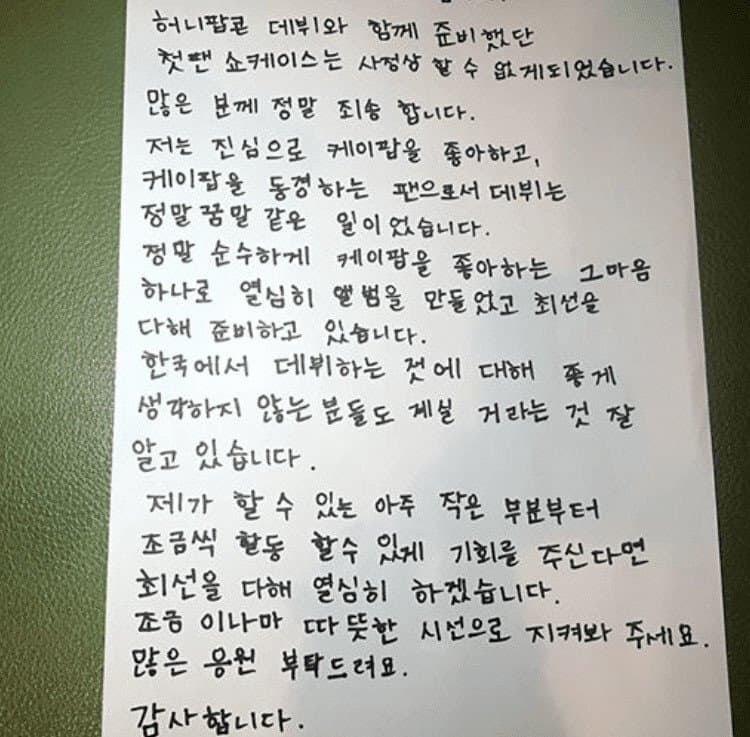 허니팝콘 데뷔와 함께 준비했단
첫팬 쇼케이스는 사정상 할 수 없게되었습니다.
많은 분께 정말 죄송 합니다.
저는 진심으로 케이팝을 좋아하고,
케이팝을 동경하는 팬으로서 데뷔는
정말 꿈말 같은 일이었습니다.
정말 순수하게 케이팝을 좋아하는 그마음
하나로 열심히 앨범을 만들었고 최선을
다해 준비하고 있습니다.
한국에서 데뷔하는 젓에 대해 좋게
생각하지 않는 분들도 계실 거라는 것 잘
알고 있습니다.
제가 할 수 있는 아주 작은 부분부터
조금씩 활동 할수 있게 기회를 주신다면
최선을 다해 열심히 하겠습니다.
조금 이나마 따뜻한 시선으로 지켜봐 주세요.
많은 응원 부탁드려요.
감사합니다.